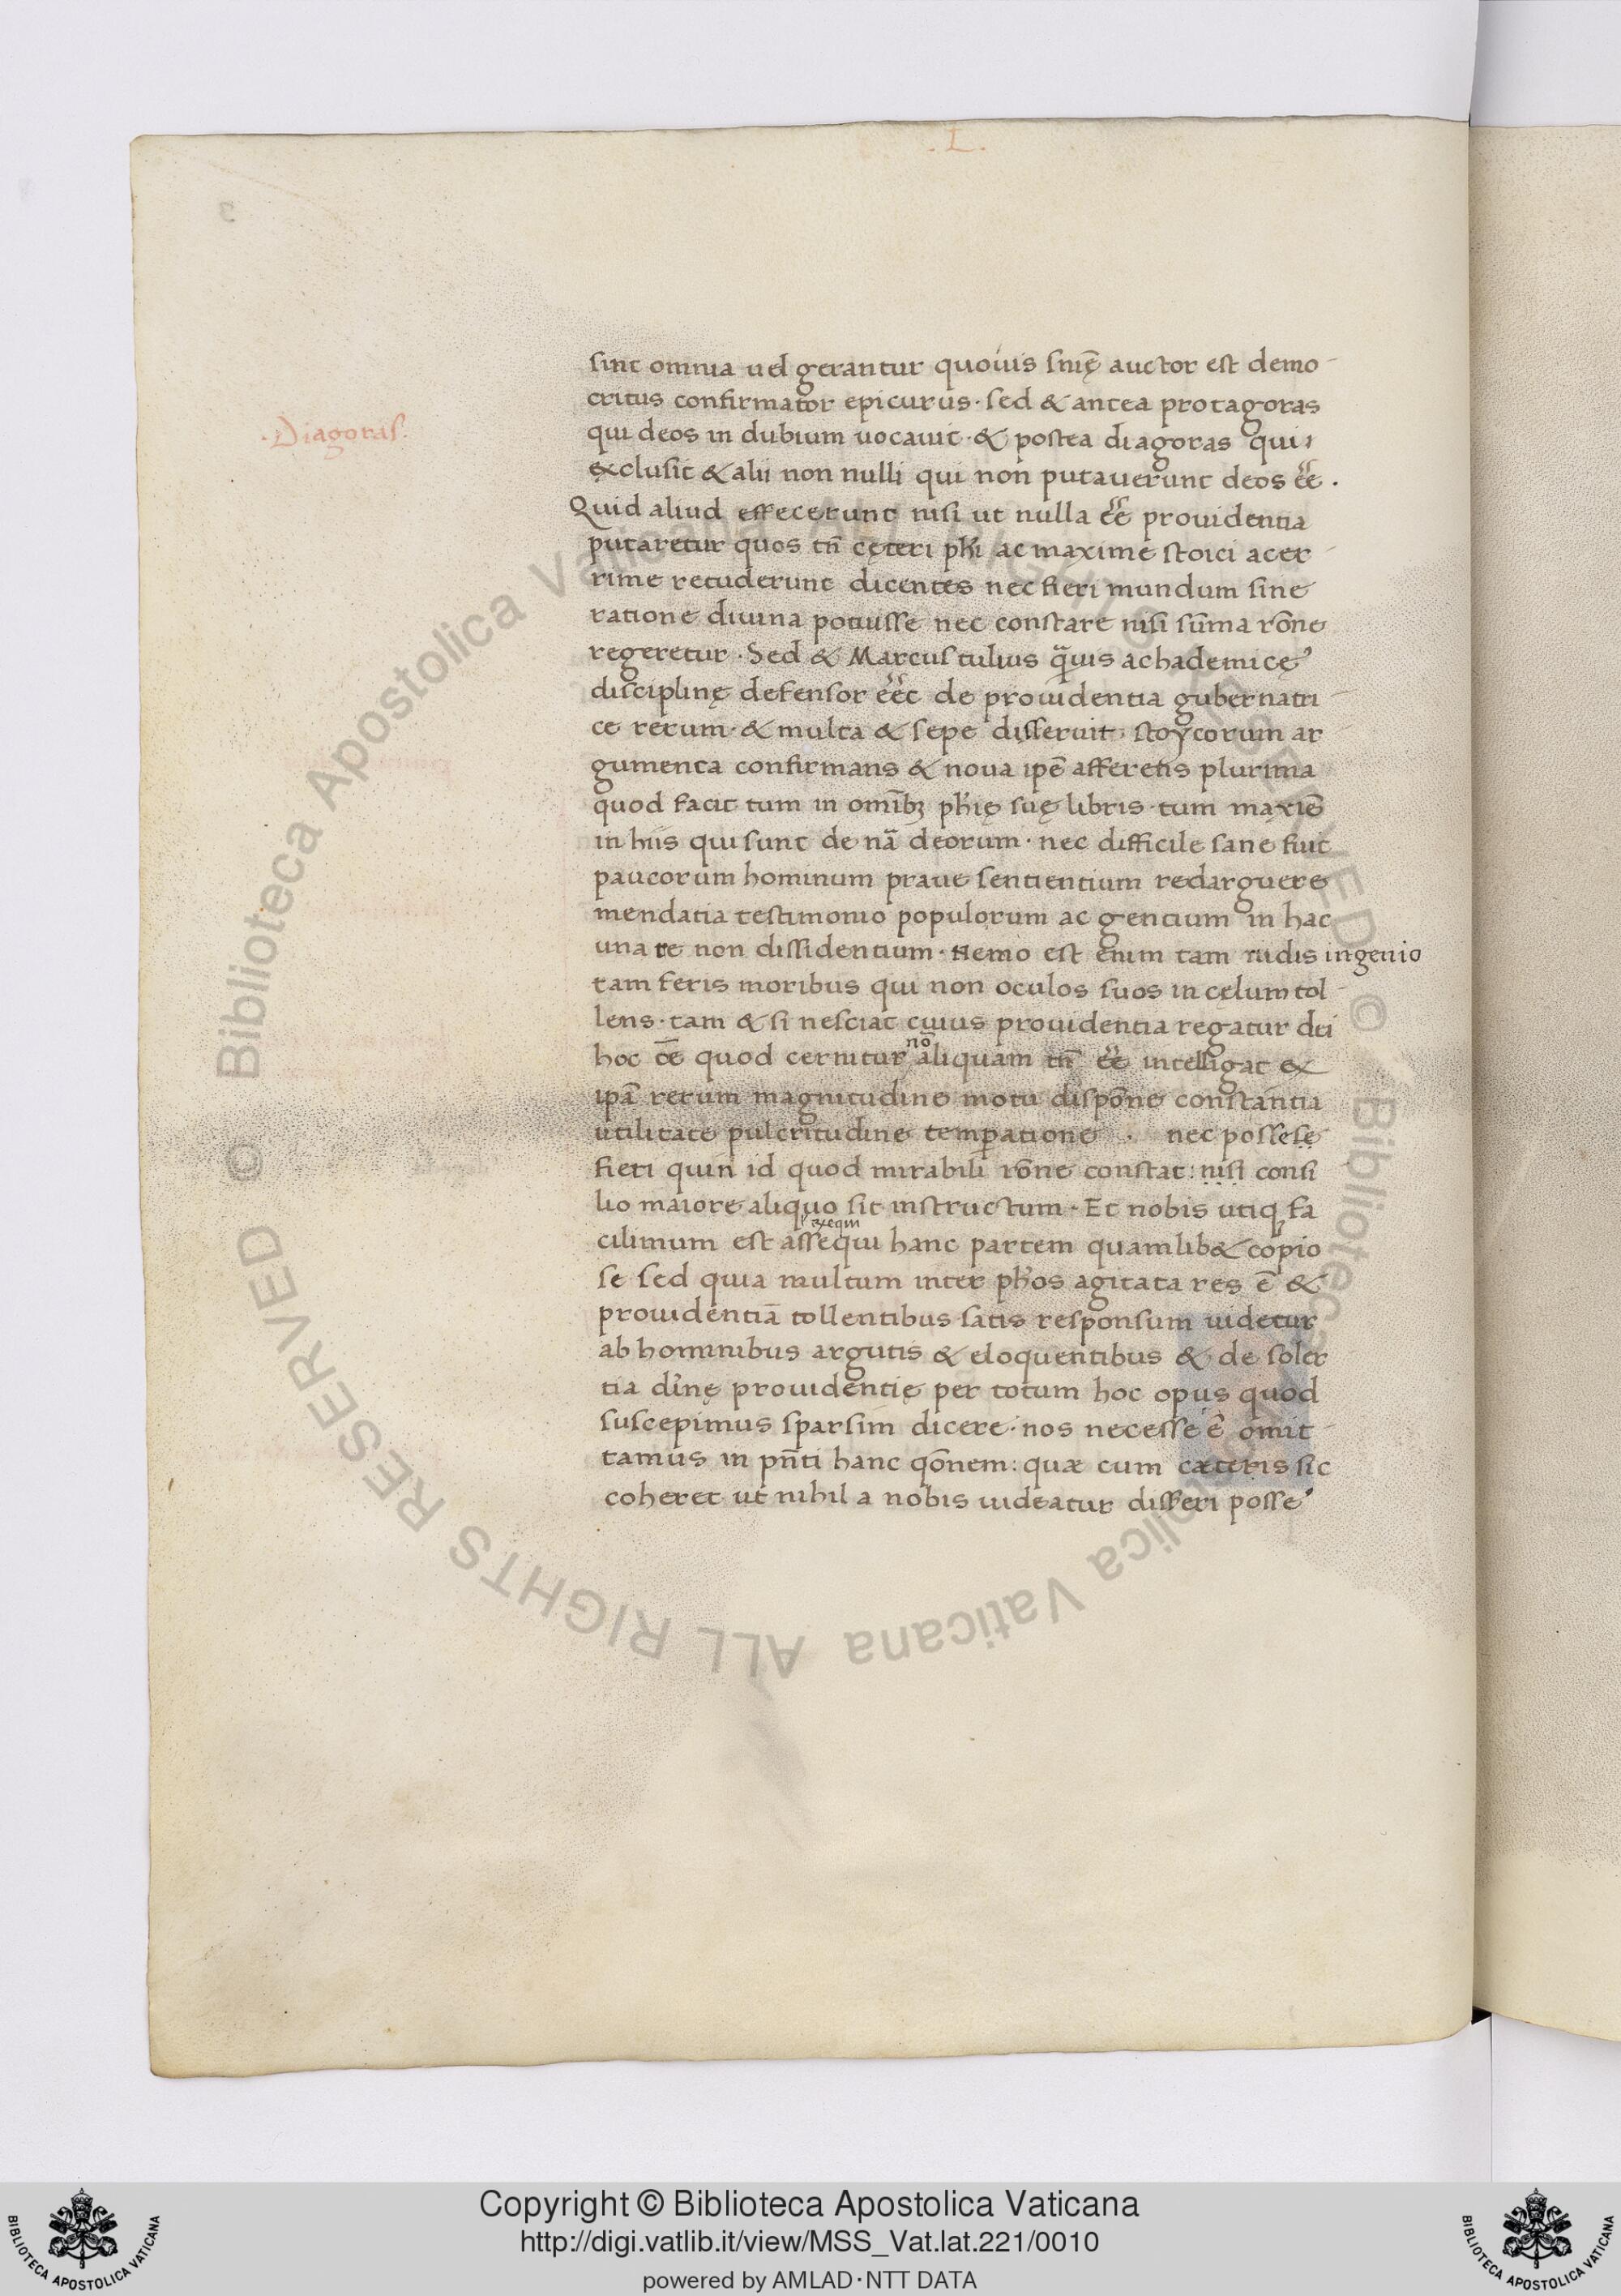 .L.
.Diagoras.
sint omnia uel gerantur quoius snię auctor est demo-
critus confirmator epicurus. sed & antea protagoras
qui deos in dubium uocauit. & postea diagoras qui
exclusit & alii non nulli qui non putauerunt deos eē.
Quid aliud effecerunt nisi ut nulla eē prouidentia
putaretur quos tn̄ cęteri phi ac maxime stoici acer-
rime retuderunt dicentes nec fieri mundum sine
ratione diuina potuisse nec constare nisi sūma rōne
regeretur. Sed & Marcus tulius q̄uis achademicę
disciplinę defensor eēt de prouidentia gubernatri-
ce rerum. & multa & sepe disseruit. stoycorum ar-
gumenta confirmans & noua ipē afferens plurima
quod facit tum in omībꝫ phię suę libris. tum maxiē
in hiis qui sunt de nā deorum. nec difficile sane fuit
paucorum hominum praue sentientium redarguere
mendatia testimonio populorum ac gentium in hac
una re non dissidentium. nemo est enim tam rudis ingenio
tam feris moribus qui non oculos suos in cęlum tol-
lens. tam & si nesciat cuius prouidentia regatur dei
hoc oē quod cernitur aliquam tn̄ eē intelligat ex
nō
ipā rerum magnitudine motu dispōne constantia
utilitate pulcritudine temperatione . nec posse se
fieri quin id quod mirabili rōne constat: nisi consi
lio maiore aliquo sit instructum. Et nobis utiqꝫ fa
exequi
cilimum est assequi hanc partem quamlib& copio
se sed quia multum inter phos agitata res ē &
prouidentiā tollentibus satis responsum uidetur
ab hominibus argutis & eloquentibus & de soler
tia diнę prouidentię per totum hoc opus quod
suscepimus sparsim dicere. nos necesse ē omit-
tamus in pn̄ti hanc qōnem: quæ cum cæteris sic
coheret ut nihil a nobis uideatur disseri posse
Copyright © Biblioteca Apostolica Vaticana
http://digi.vatlib.it/view/MSS_Vat.lat.221/0010
powered by AMLAD·NTT DATA
BIBLIOTECA APOSTOLICA VATICANA
BIBLIOTECA APOSTOLICA VATICANA
© Biblioteca Apostolica Vaticana ALL RIGHTS RESERVED © Biblioteca Apostolica Vaticana ALL RIGHTS RESERVED